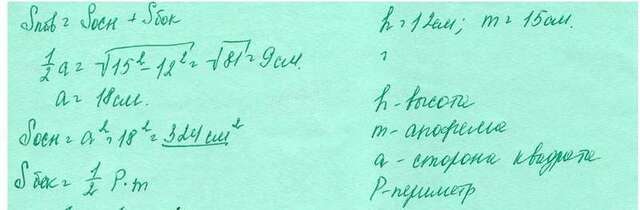 Sпов = Sосн + Sбок
1/2 a = √15² - 12² = √81 = 9 см.
a = 18 см.
Sосн = a² = 18² = 324 см²
Sбок = 1/2 P · m
h = 12 см; m = 15 см.
h - высота
m - апофема
a - сторона квадрата
P - периметр